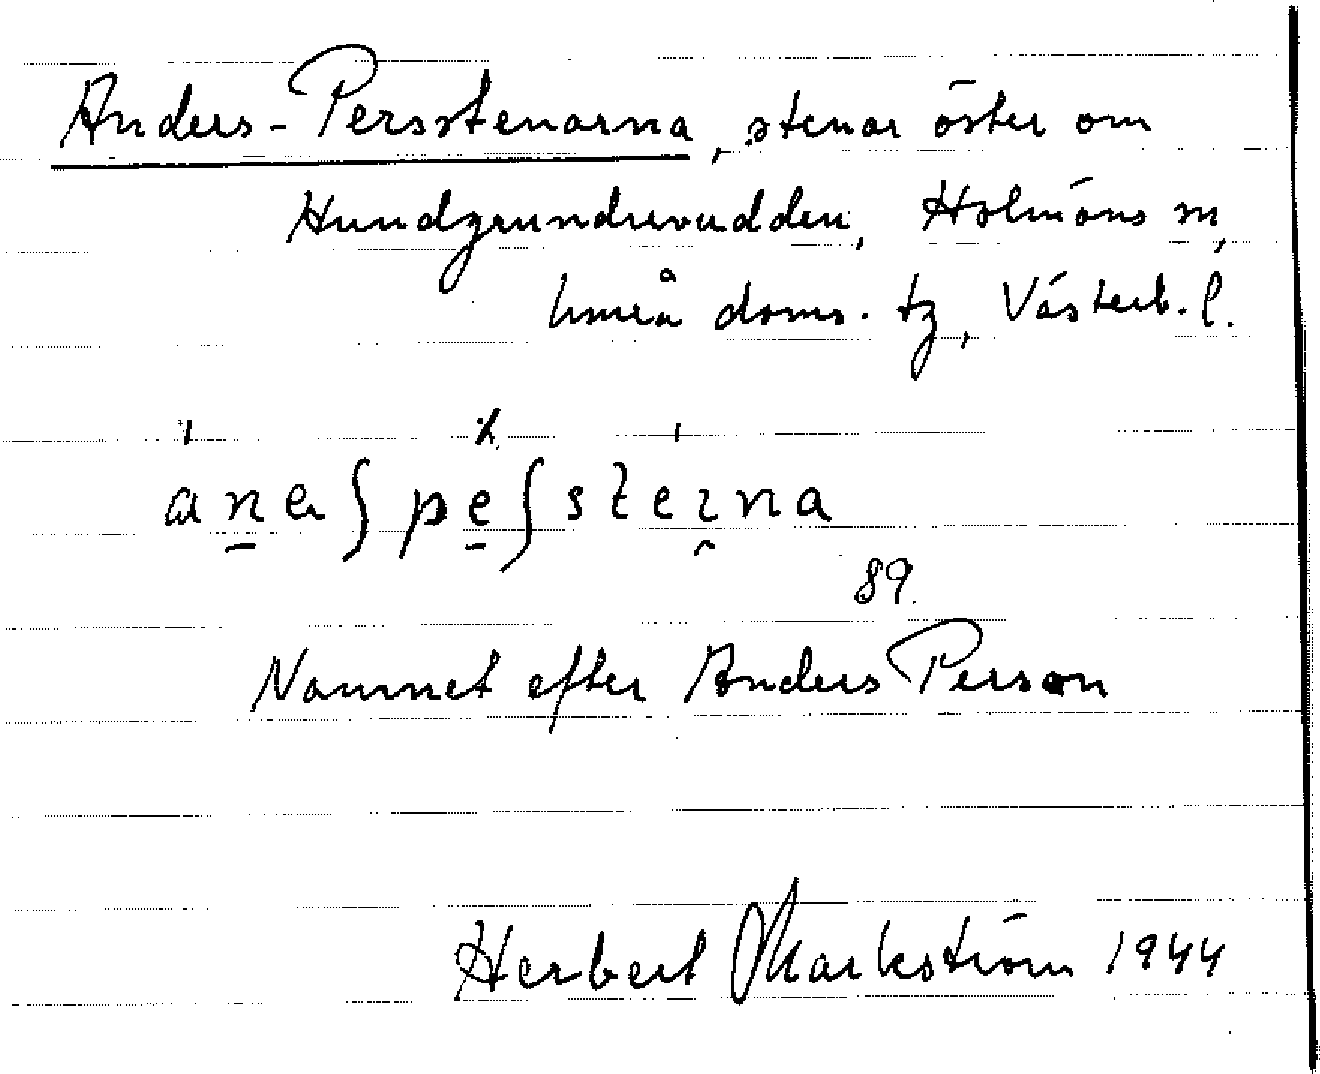 Anders-Persstenarna, stenar öster om
Hundgrundrevudden, Holmöns sn,
Umeå doms. tg, Västerb. l.
anaʃ peʃ steɪna
89.
Namnet efter Anders Person
Herbert Markström 1944